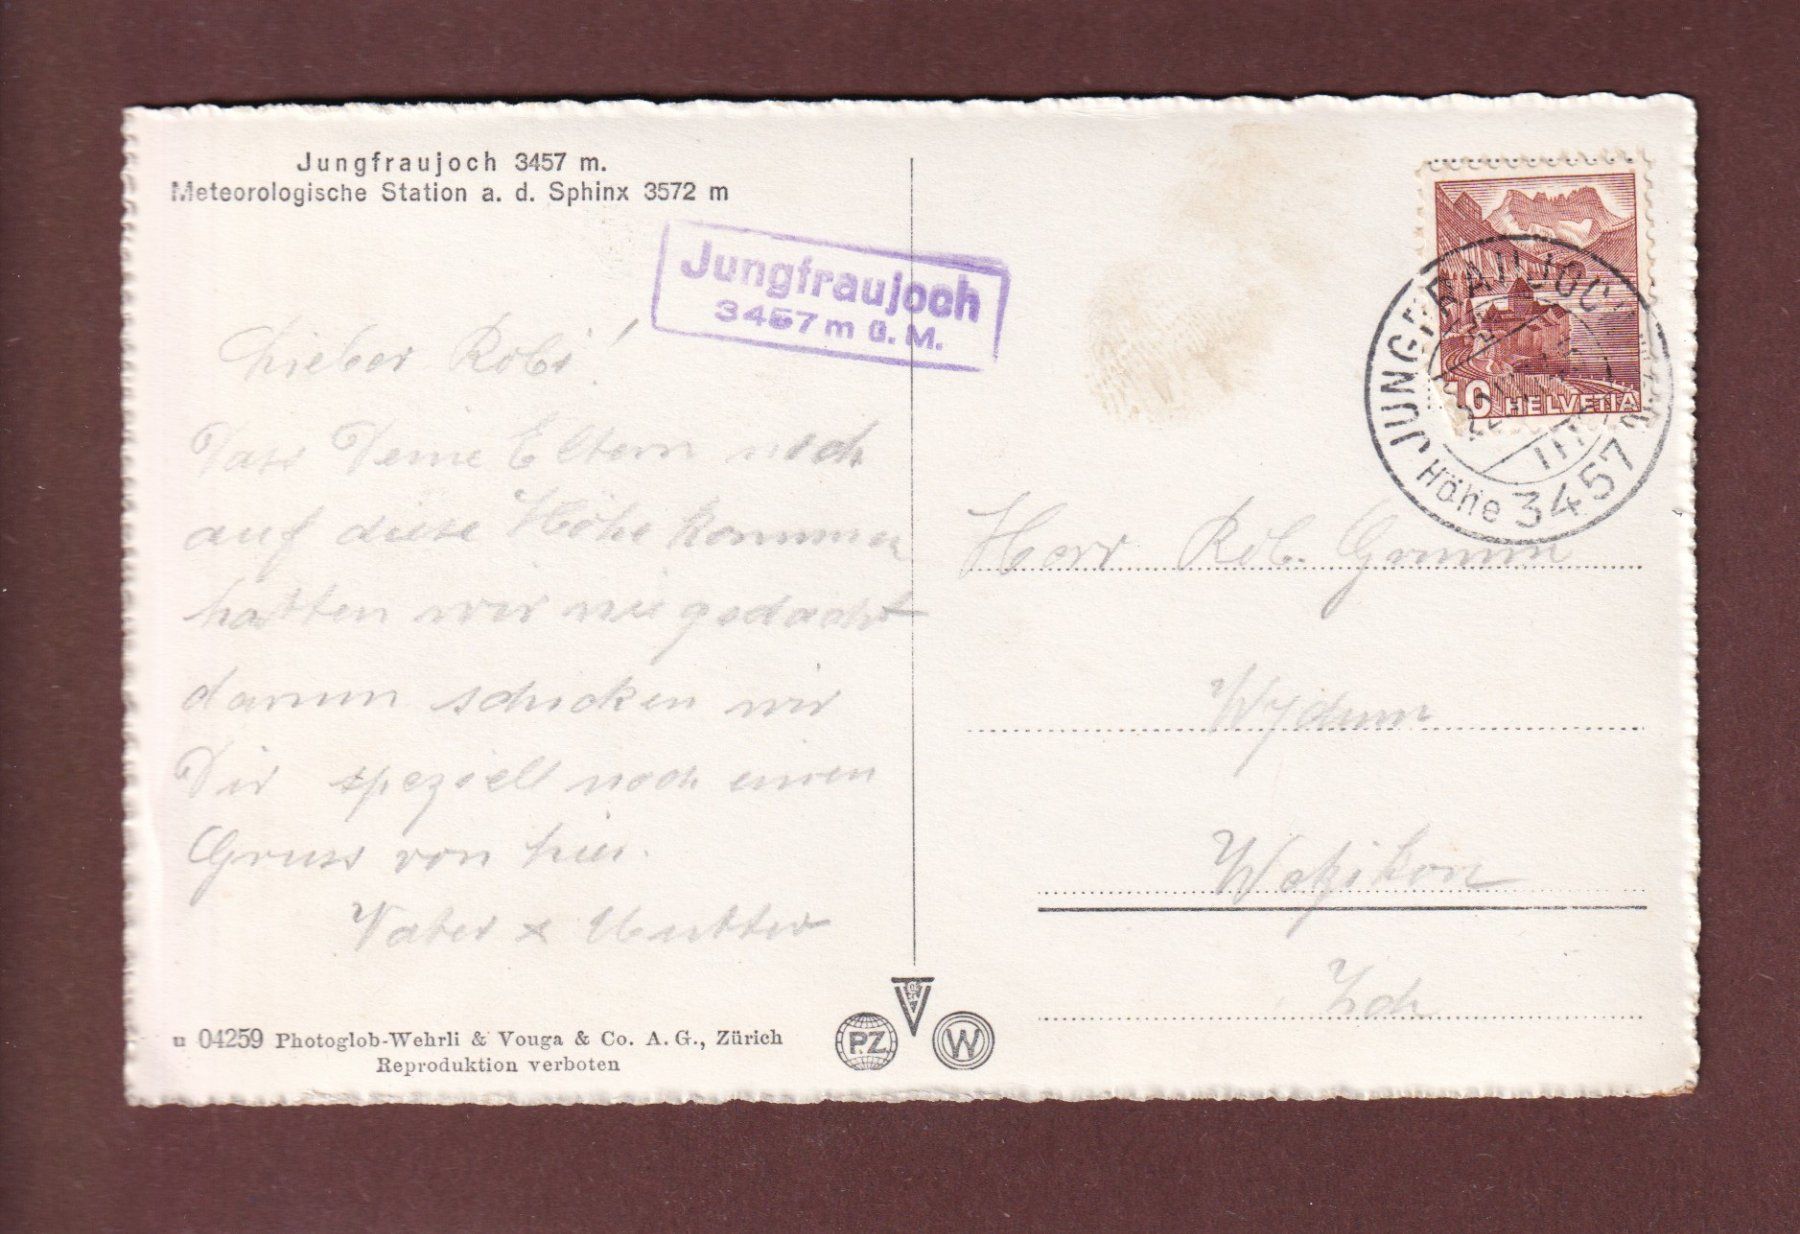 Jungfraujoch 3457 m.
Meteorologische Station a. d. Sphinx 3572 m
Jungfraujoch
3457 m ü. M.
Lieber Robi!
Dass Deine Eltern noch
auf diese Höhe kommen
hatten wir nie gedacht
darum schicken wir
Dir speziell noch einen
Gruss von hier.
Vater & Mutter
10 HELVETIA
JUNGFRAUJOCH
Höhe 3457 m
Herr Rob. Grimm
Wydum
Wetzikon
Zch
u 04259 Photoglob-Wehrli & Vouga & Co. A. G., Zürich
Reproduktion verboten
PZ
V
W